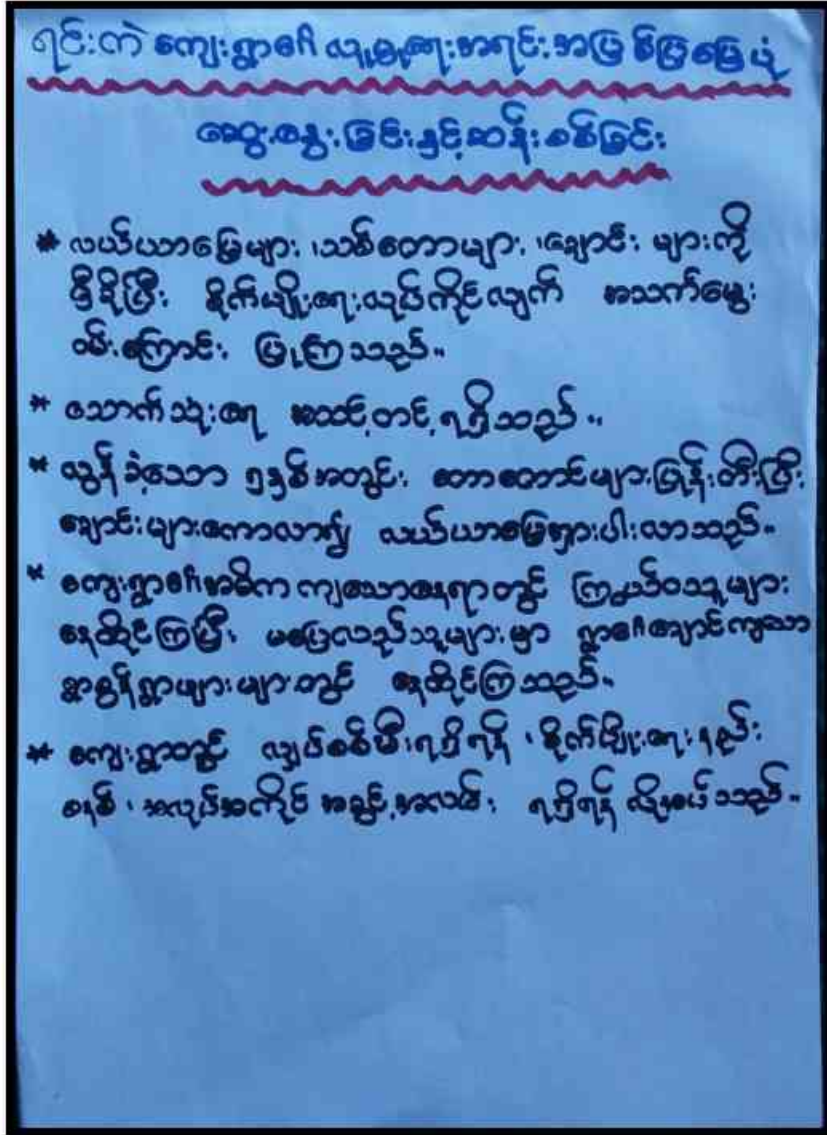 ရင်းကဲ ကျေးရွာ၏ လူမှုရေးအရင်းအမြစ်ပြမြေပုံ
ဆွေးနွေးခြင်းနှင့်ဆန်းစစ်ခြင်း
* လယ်ယာမြေများ ၊သစ်တောများ ၊ချောင်း များကို
မှီခိုပြီး စိုက်ပျိုးရေးလုပ်ကိုင်လျက် အသက်မွေး
ဝမ်းကြောင်း ပြုကြသည်။
* သောက်သုံးရေ အသင့်တင့်ရရှိသည်။
* လွန်ခဲ့သော ၅နှစ်အတွင်း တောတောင်များပြုန်းတီးပြီး
ချောင်းများကောလာ၍ လယ်ယာမြေရှားပါးလာသည်။
* ကျေးရွာ၏အဓိကကျသောနေရာတွင် ကြွယ်ဝသူများ
နေထိုင်ကြပြီး မပြေလည်သူများမှာ ရွာ၏ချောင်ကျသော
ရွာစွန်ရွာဖျားများတွင် နေထိုင်ကြသည်။
* ကျေးရွာတွင် လျှပ်စစ်မီးရရှိရန် ၊ စိုက်ပျိုးရေးနည်း
စနစ် ၊ အလုပ်အကိုင် အခွင့်အလမ်း ရရှိရန် လိုအပ်သည်။